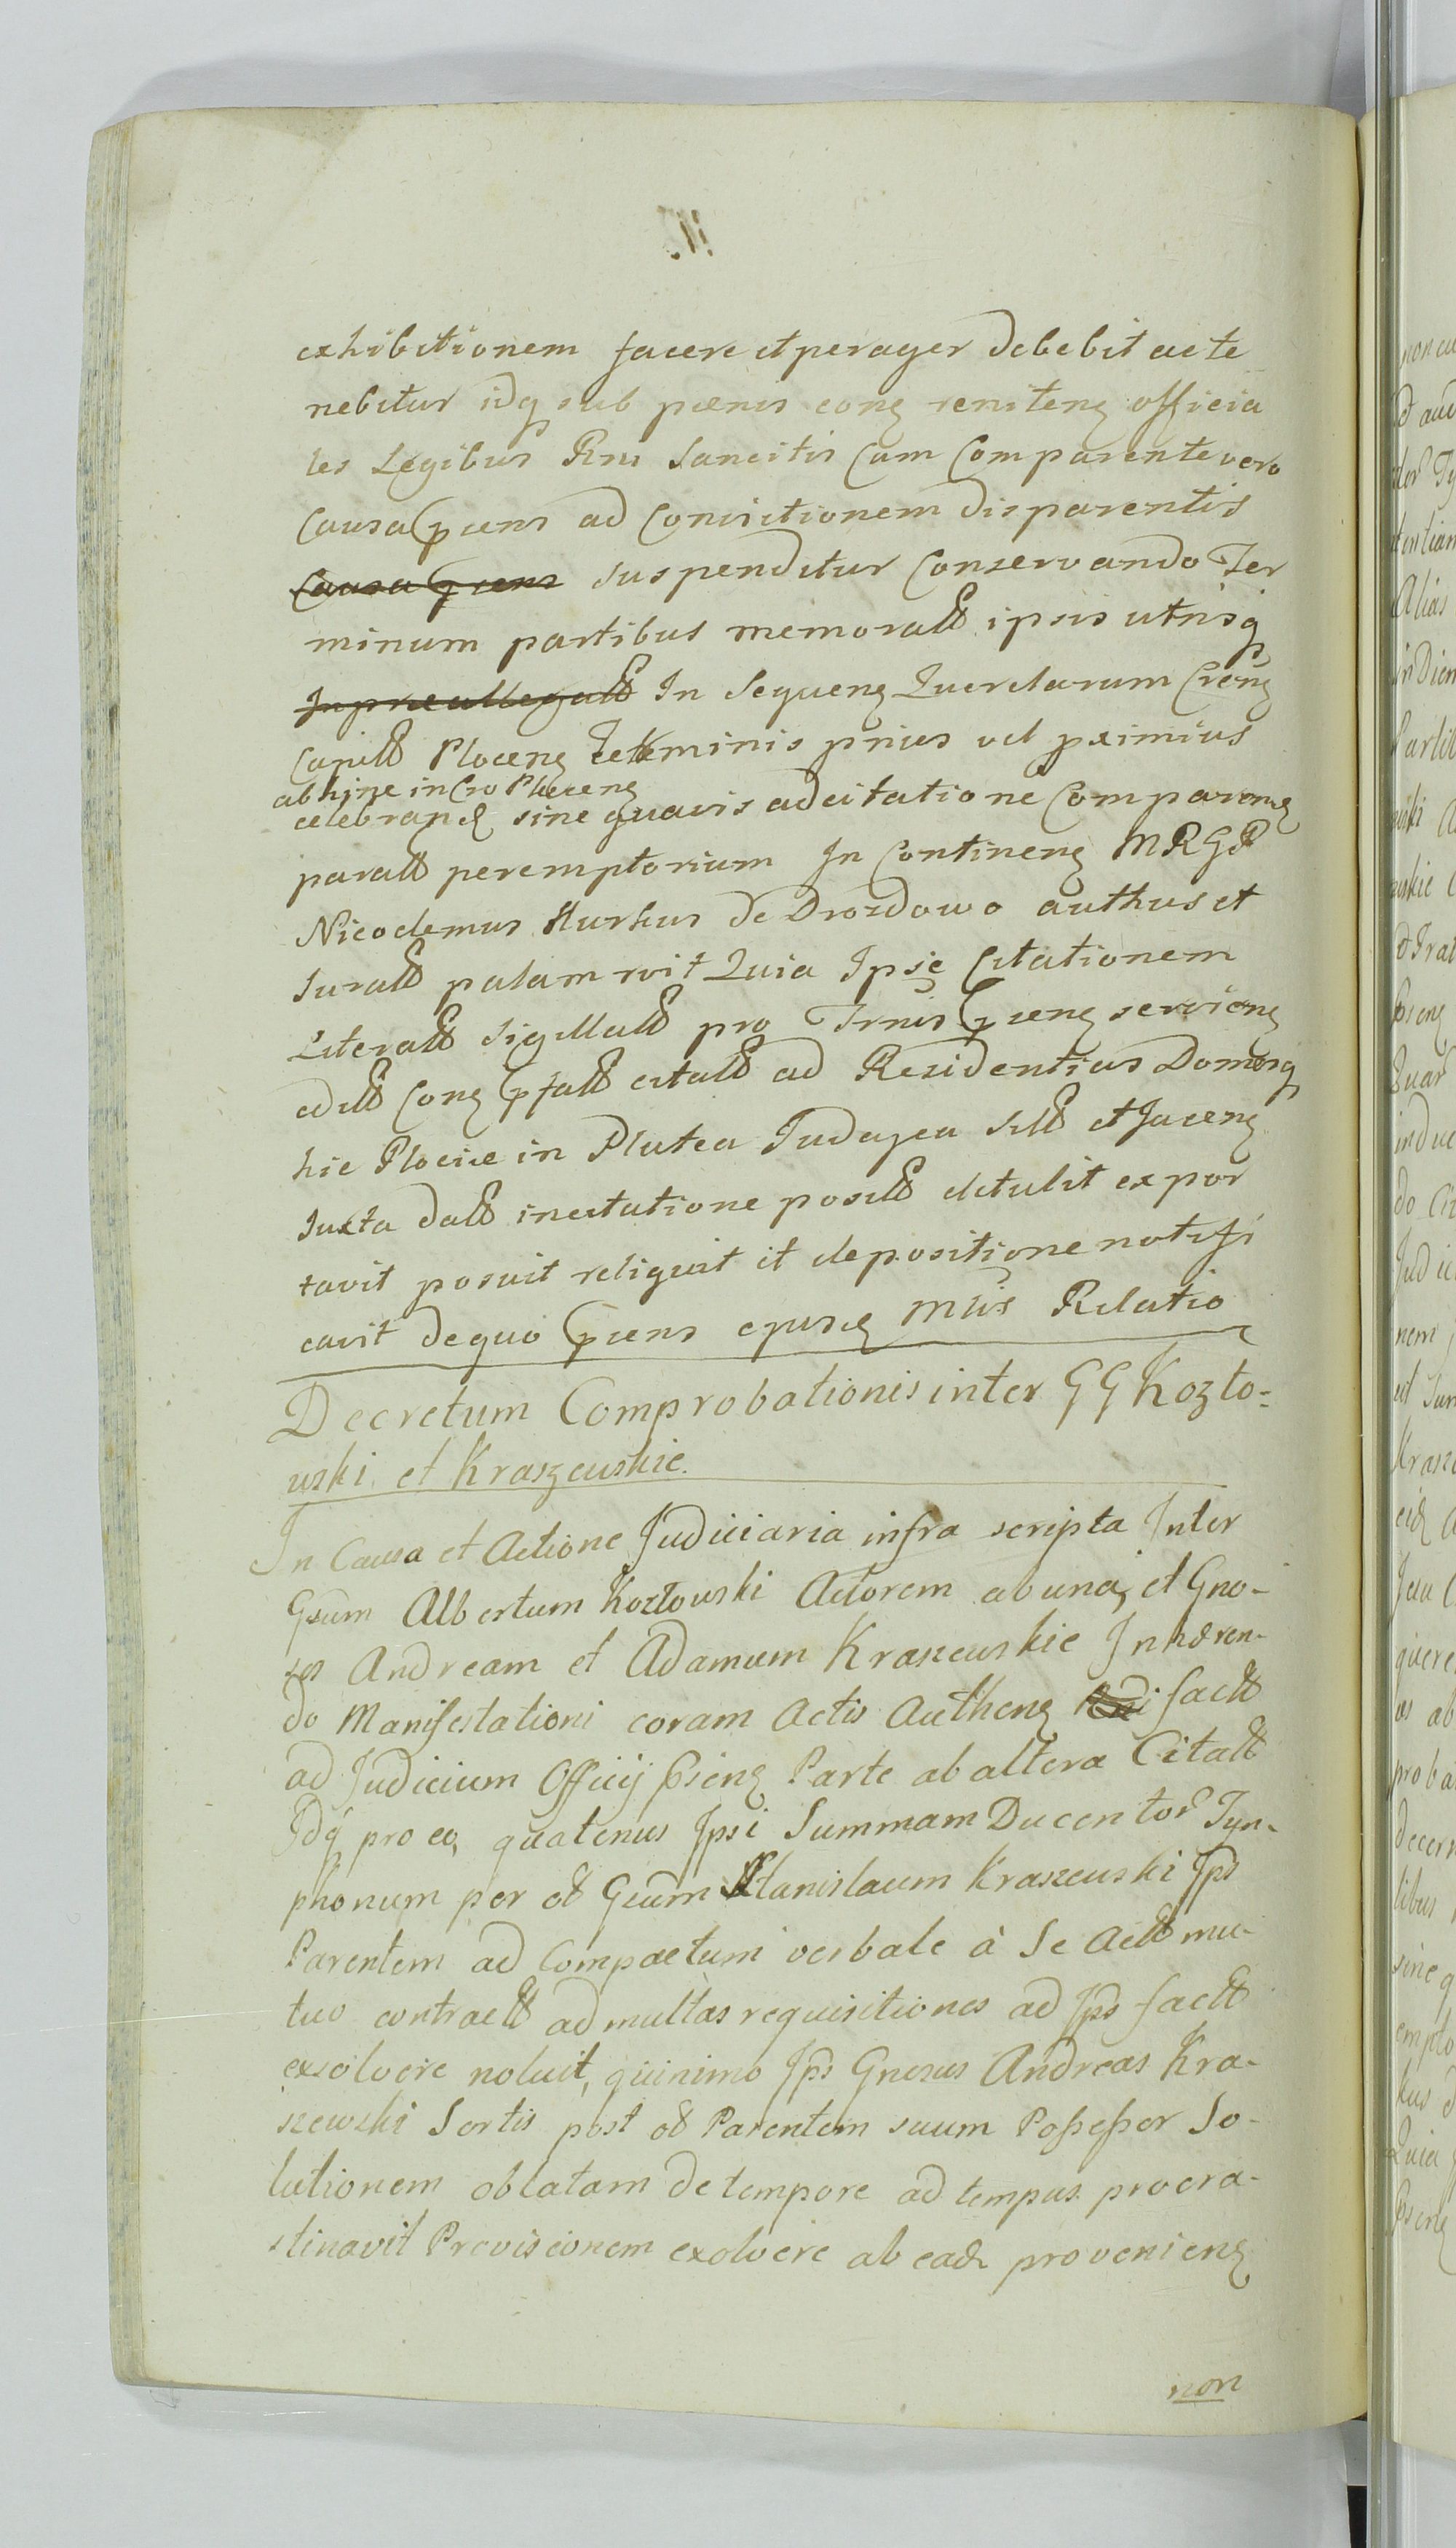 exhibitionem facere et perager debebit ac te
nebitur idq sub pænis conq renitenq officia
les Legibus Rni Sancitis Cum Comparente vero
Causa pnens ad Convictionem disparentis
Causa pnens suspenditur Conservando Ter
minum partibus memoratt ipsis utrisq
In præallegatt In Sequenq Querelarum Crenq
Capitt Plocenq Terminis prius vel pximius
abhinc in Cro Plocenq
celebrand sine quavis adcitatione Comparenq
paratt peremptorium In Continenq MRGR
Nicodemus Kurkus de Drozdowo authus et
Juratt palam rvit Quia Ipse Citationem
Literatt Sigillatt pro Trnis pnenq servienq
editt Conq pfatt citatt ad Residentias Domosq
hic Plociæ in Platea Judayca sitt et Jacenq
Juxta datt in citatione positt detulit expor
tavit posuit reliquit et depositione notifi
cavit de quo pnens ejusd Mlis Relatio
Decretum Comprobationis inter GG Kozło-
wski et Kraszewskie
In Causa et Actione Judiciaria infra scripta Inter
Gsum Albertum Kozłowski Actorem ab una, et Gno-
sos Andream et Adamum Kraszewskie Inhæren-
do Manifestationi coram Actis Authenq factt
ad Judicium Officij psenq Parte ab altera Citatt
Idq pro eo, quatenus Ipsi Summam Ducentor Tyn-
phonum per oł Gsum Stanislaum Kraszewski Ips
Parentem ad Compactum verbale à Se Actt mu-
tuo contractt ad multas requisitiones ad Ips factt
exsolvere noluit, quinimo Ips Gnosus Andreas Kra-
szewski Sortis post oł Parentem suum Possessor So-
lutionem oblatam de tempore ad tempus procra-
stinavit Provisionem exolvere ab ead provenienq
non